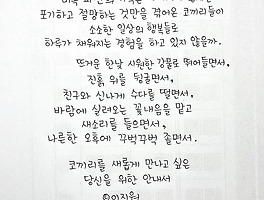 포기하고 절망하는 것만을 겪어온 코끼리들이
소소한 일상의 행복들로
하루가 채워지는 경험을 하고 있지 않을까.
뜨거운 한낮 시원한 강물로 뛰어들면서,
진흙 위를 뒹굴면서,
친구와 신나게 수다를 떨면서,
바람에 실려오는 꽃내음을 맡고
새소리를 들으면서,
나른한 오후에 꾸벅꾸벅 졸면서.
코끼리를 새롭게 만나고 싶은
당신을 위한 안내서